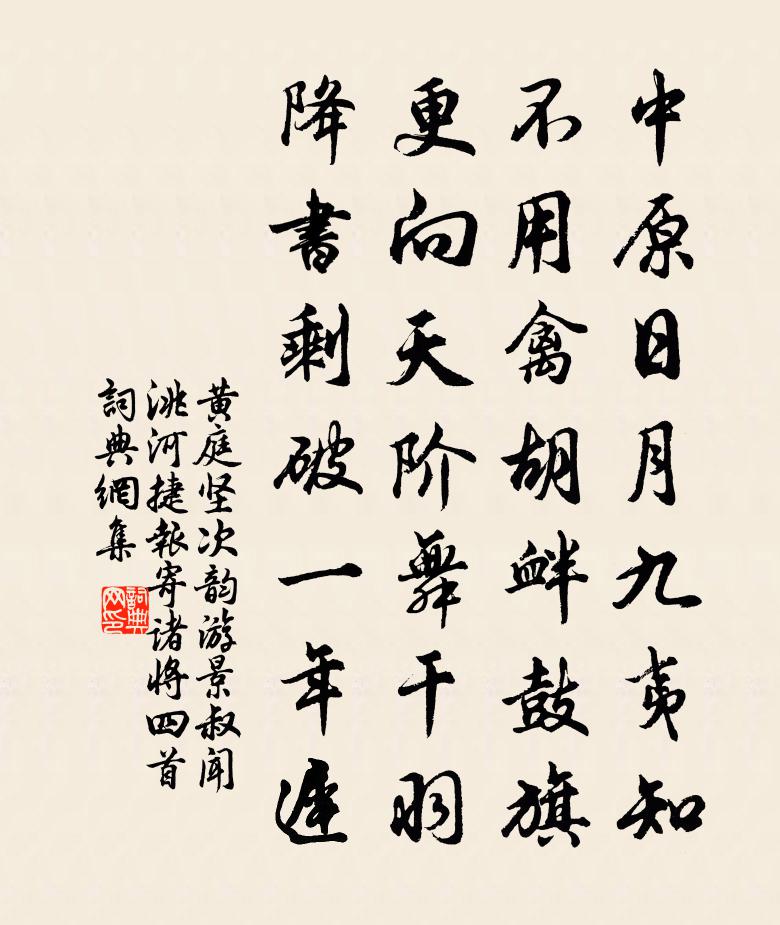 中原日月九夷知
不用禽胡衅鼓旗
更向天阶舞干羽
降书剩破一年迟
黄庭坚次韵游景叔闻
洮河捷报寄诸将四首
詞典網集
詞典
网印